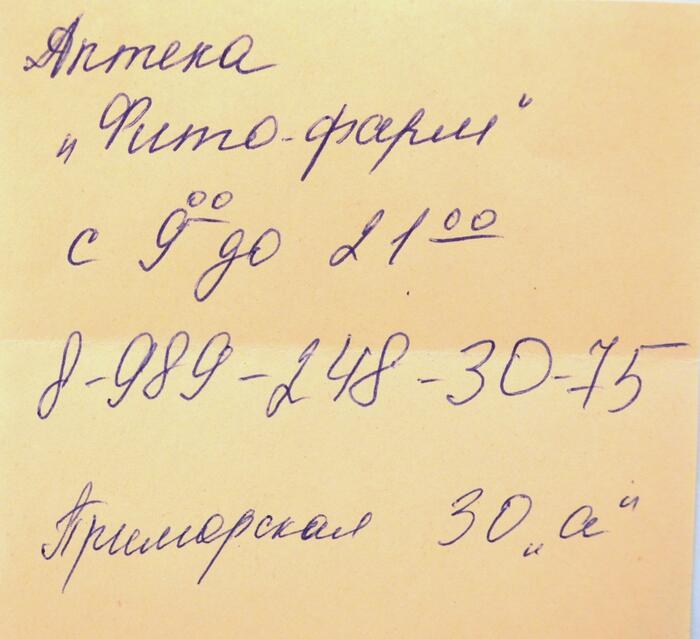 Аптека
„Фито-фарм“
с 9⁰⁰ до 21⁰⁰
8-989-248-30-75
Приморская 30„а“